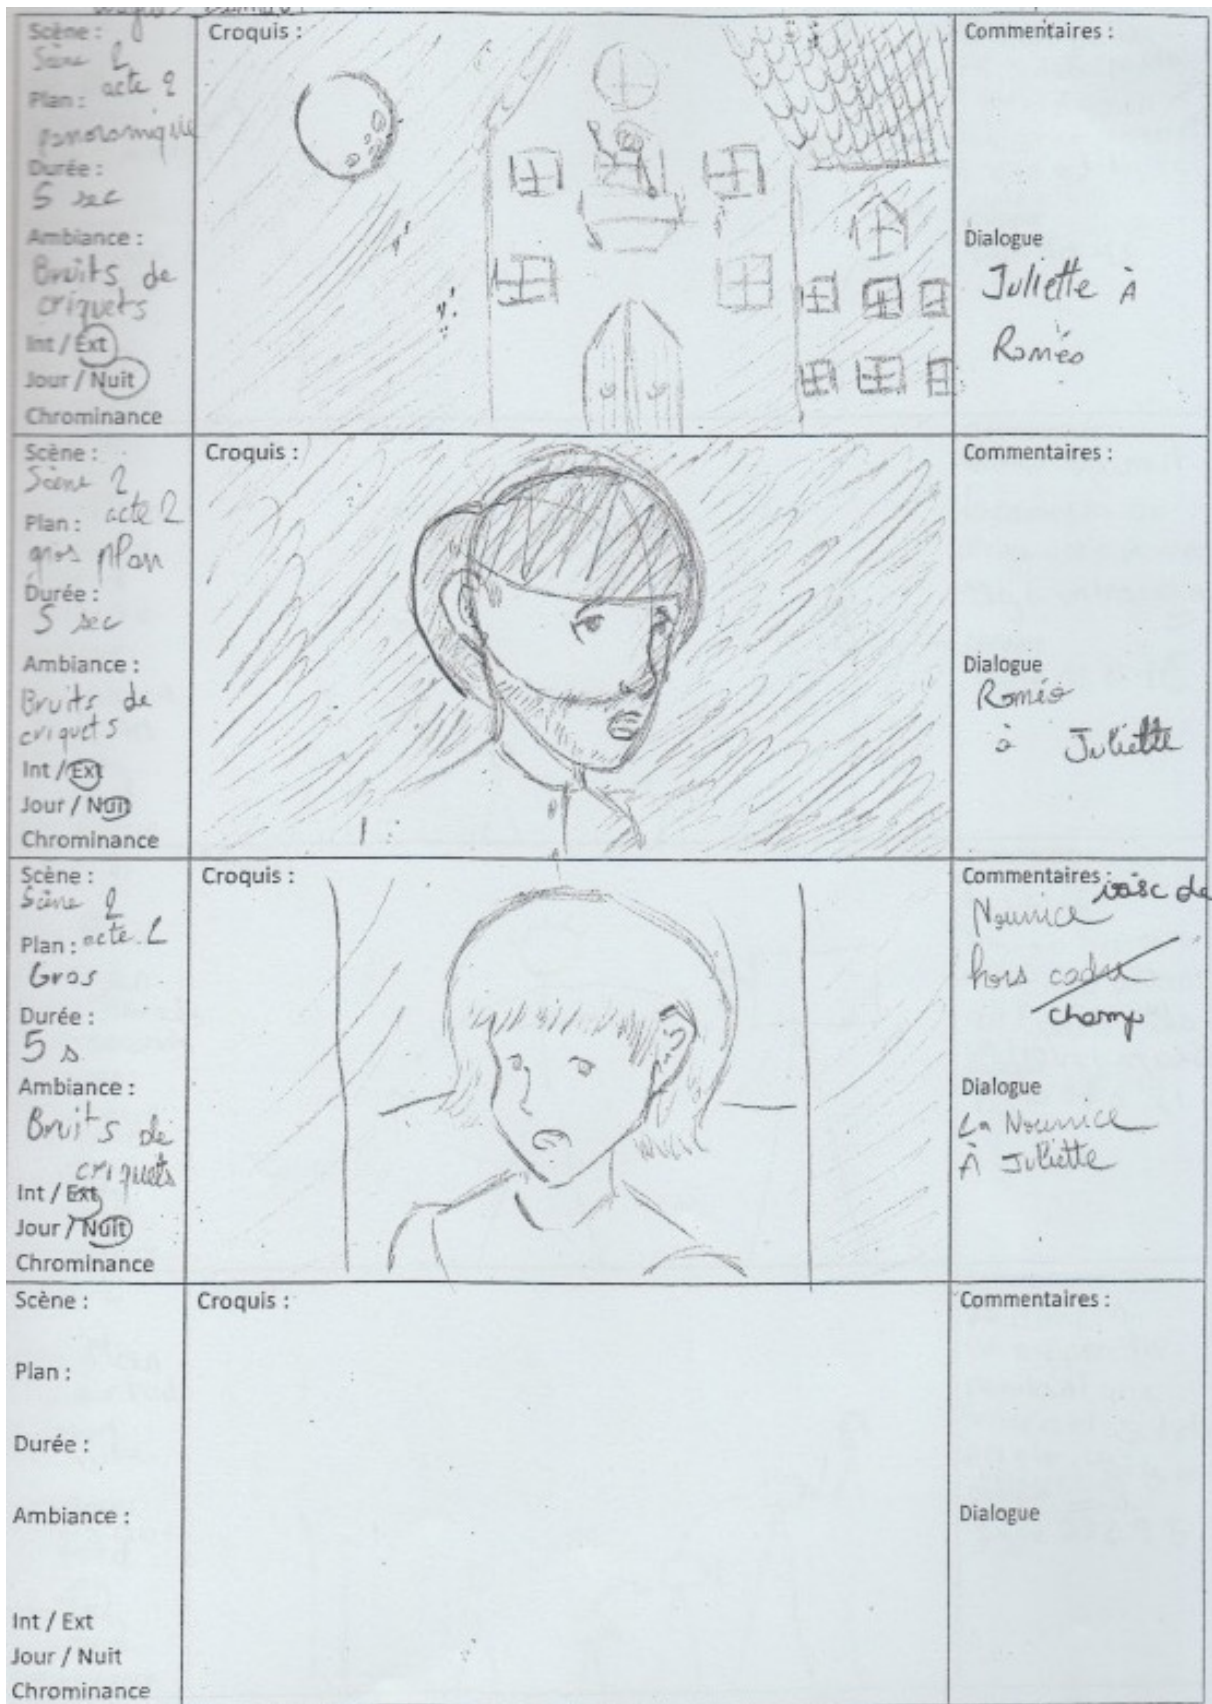 Scène :
Scène 2
acte 2
Plan :
panoramique
Durée :
5 sec
Ambiance :
Bruits de
criquets
Int / Ext
Jour / Nuit
Chrominance
Croquis :
Commentaires :
Dialogue
Juliette À
Roméo
Scène :
Scène 2
acte 2
Plan :
gros plan
Durée :
5 sec
Ambiance :
Bruits de
criquets
Int / Ext
Jour / Nuit
Chrominance
Croquis :
Commentaires :
Dialogue
Roméo
à Juliette
Scène :
Scène 2
Plan : acte 2
Gros
Durée :
5 s
Ambiance :
Bruits de
criquets
Int / Ext
Jour / Nuit
Chrominance
Croquis :
Commentaires :
Nourrice
hors cadre
champ
Dialogue
La Nourrice
À Juliette
Scène :
Plan :
Durée :
Ambiance :
Int / Ext
Jour / Nuit
Chrominance
Croquis :
Commentaires :
Dialogue